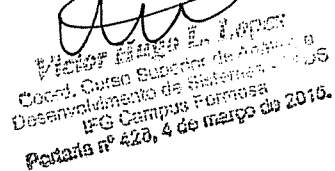 Victor Hugo L. Lopes
Coord. Curso Superior de Análise e
Desenvolvimento de Sistemas
IFG Campus Formosa
Portaria nº 428, 4 de março de 2015.